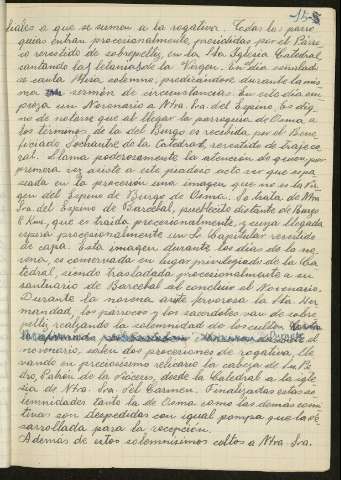 fieles a que se sumen a la rogativa. Todas las parro
quias entran procesionalmente, presididas por el Párro
co revestido de sobrepelliz, en la Sta Iglesia Catedral
cantando las letanías de la Virgen. En día señalado
se canta Misa solemne, predicándose durante la mis
ma sermón de circunstancias. En este día em
pieza un Novenario a Ntra Sra. del Espino. Es dig
no de notarse que al llegar la parroquia de Osma, a
los términos de la del Burgo es recibida por el Bene
ficiado Sochantre de la Catedral, revestido de traje co
ral. Llama poderosamente la atención de quien por
primera vez asiste a este piadoso acto ver que repa
sada en la procesión una imagen que no es la Vir
gen del Espino de Burgo de Osma. Se trata de Ntra
Sra. del Espino de Barcebal, pueblecito distante de Burgo
6 Kms, que es traída procesionalmente, y cuya llegada
espera procesionalmente un Sr Capitular revestido
de capa. Esta imagen durante los días de la no
vena, es conservada en lugar privilegiado de la Ca
tedral, siendo trasladada procesionalmente a su
santuario de Barcebal al concluir el Novenario.
Durante la novena asiste fervorosa la Sta Her
mandad, los párrocos y los sacerdotes van de sobre
pelliz, realzando la solemnidad de los cultos
Durante el
novenario, salen dos procesiones de rogativa, lle
vando en preciosísimo relicario la cabeza de San Pe
dro, Patrón de la Diócesis, desde la Catedral a la igle
sia de Ntra Sra. del Carmen. Finalizadas estas so
lemnidades tanto la de Osma como las demás comi
tivas son despedidas con igual pompa que la de
sarrollada para la recepción.
Además de estos solemnísimos cultos a Ntra. Sra.